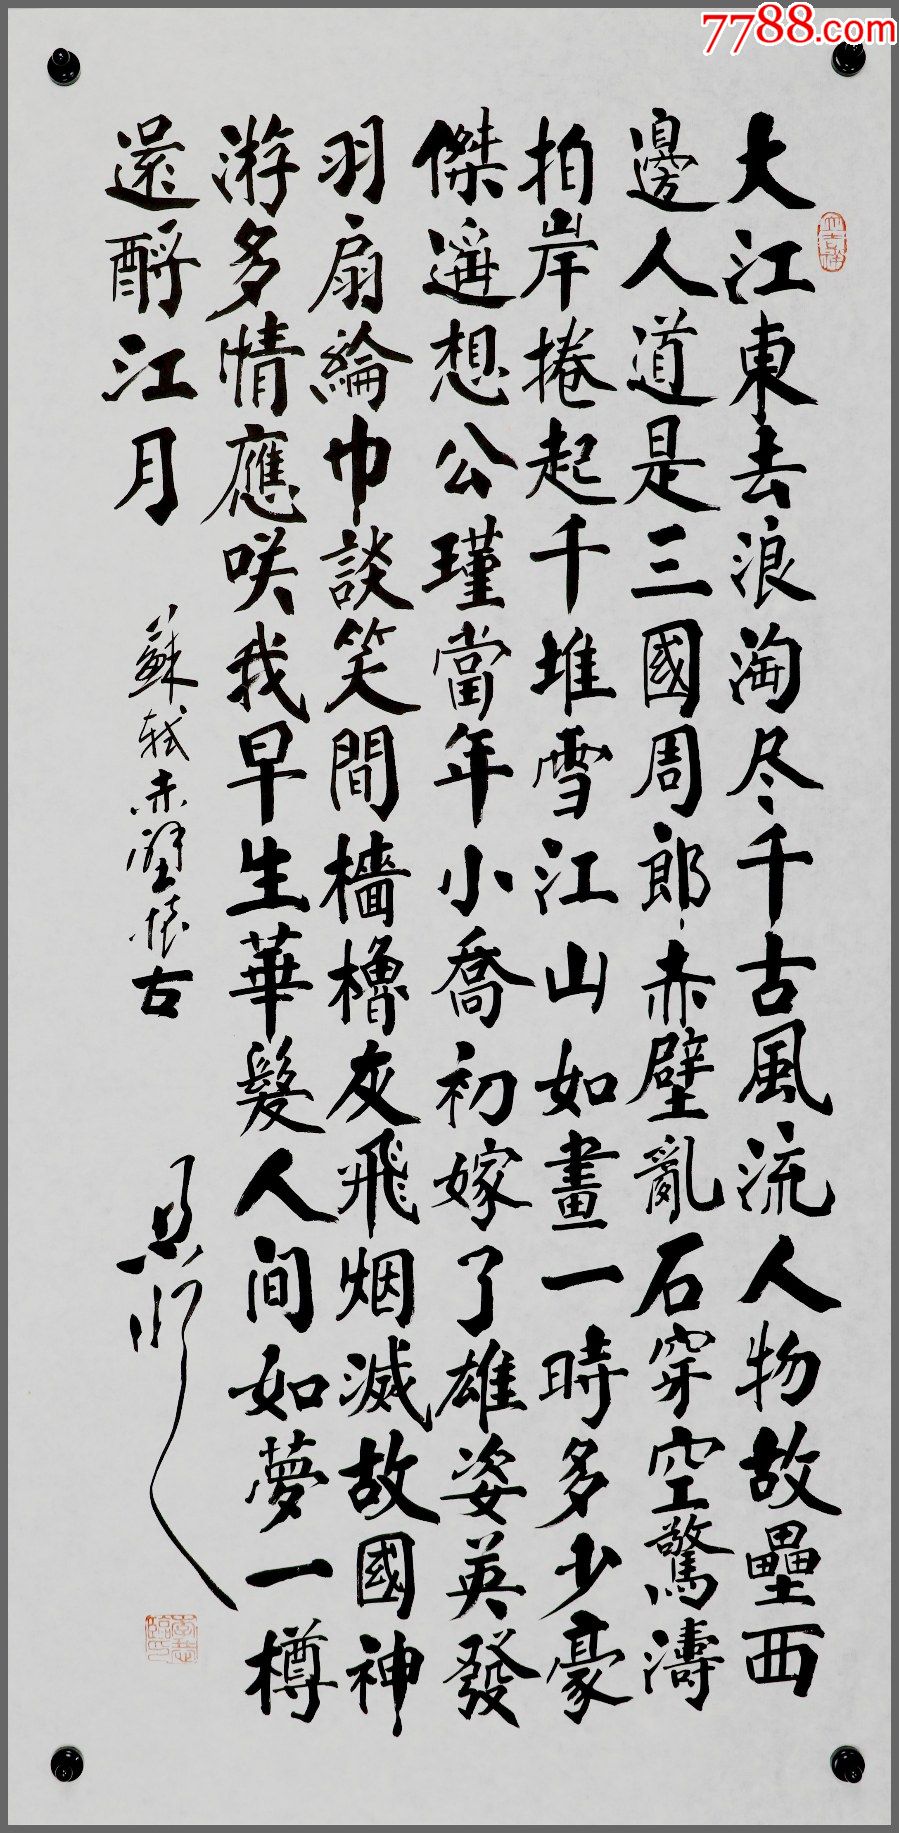 7788.com
大江東去浪淘尽千古風流人物故壘西
邊人道是三國周郎赤壁亂石穿空驚濤
拍岸捲起千堆雪江山如畫一時多少豪
傑遥想公瑾當年小喬初嫁了雄姿英發
羽扇綸巾談笑間檣櫓灰飛烟滅故國神
游多情應咲我早生華髮人间如夢一樽
還酹江月
蘇軾赤壁懷古